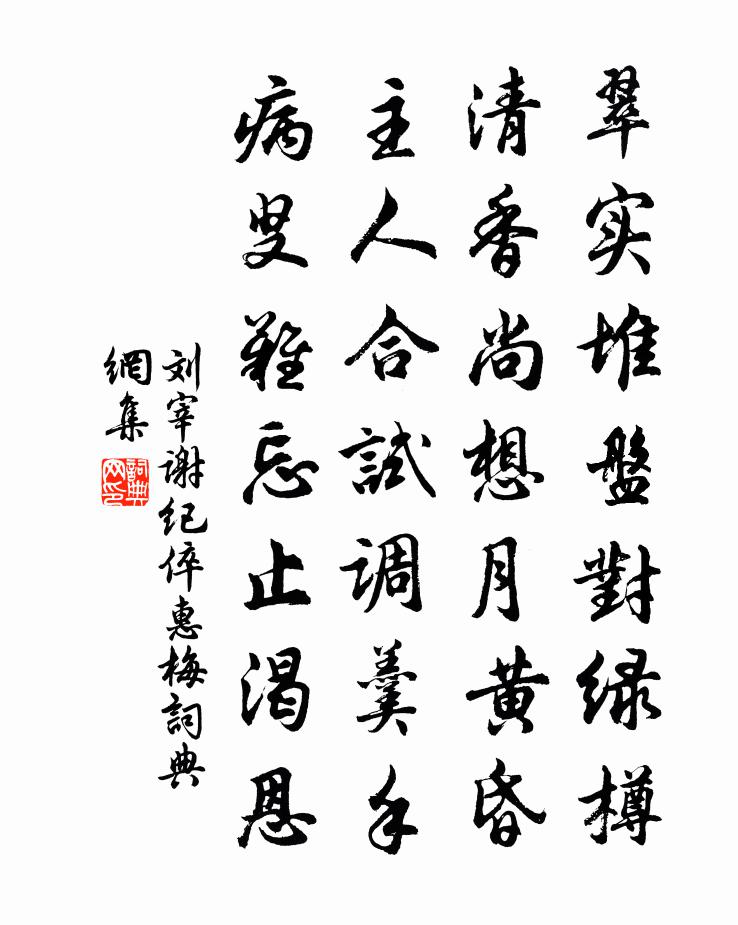 翠实堆盤對緑樽
清香尚想月黄昏
主人合試调羹手
病叟難忘止渴恩
刘宰谢纪倅惠梅詞典
網集
詞典
网印